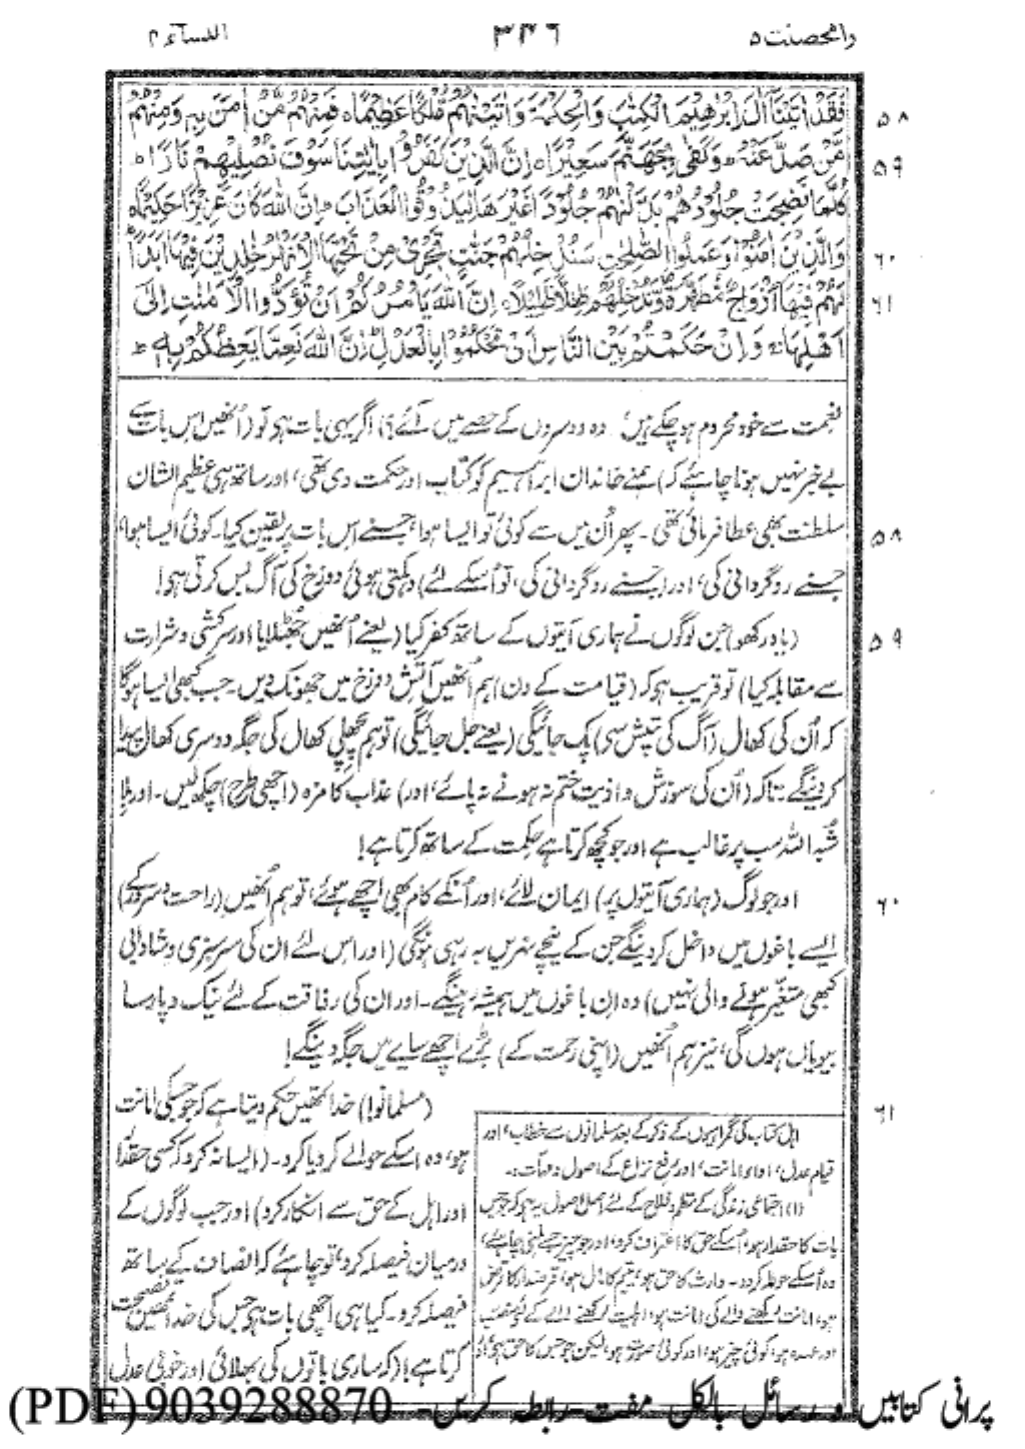 والمحصنت ۵
۳۴۶
النساء ۴
فَقَدْ اٰتَیْنَاۤ اٰلَ اِبْرٰهِیْمَ الْكِتٰبَ وَالْحِكْمَةَ وَاٰتَیْنٰهُمْ مُّلْكًا عَظِیْمًا ۵ فَمِنْهُمْ مَّنْ اٰمَنَ بِهٖ وَمِنْهُمْ
۵۸
مَّنْ صَدَّ عَنْهُ ؕ وَكَفٰى بِجَهَنَّمَ سَعِیْرًا ۵ اِنَّ الَّذِیْنَ كَفَرُوْا بِاٰیٰتِنَا سَوْفَ نُصْلِیْهِمْ نَارًا ؕ
۵۹
كُلَّمَا نَضِجَتْ جُلُوْدُهُمْ بَدَّلْنٰهُمْ جُلُوْدًا غَیْرَهَا لِیَذُوْقُوا الْعَذَابَ ؕ اِنَّ اللّٰهَ كَانَ عَزِیْزًا حَكِیْمًا ۵
وَالَّذِیْنَ اٰمَنُوْا وَعَمِلُوا الصّٰلِحٰتِ سَنُدْخِلُهُمْ جَنّٰتٍ تَجْرِیْ مِنْ تَحْتِهَا الْاَنْهٰرُ خٰلِدِیْنَ فِیْهَاۤ اَبَدًا ؕ
۶۰
لَهُمْ فِیْهَاۤ اَزْوَاجٌ مُّطَهَّرَةٌ وَّنُدْخِلُهُمْ ظِلًّا ظَلِیْلًا ۵ اِنَّ اللّٰهَ یَاْمُرُكُمْ اَنْ تُؤَدُّوا الْاَمٰنٰتِ اِلٰۤى
۶۱
اَهْلِهَا ۙ وَاِذَا حَكَمْتُمْ بَیْنَ النَّاسِ اَنْ تَحْكُمُوْا بِالْعَدْلِ ؕ اِنَّ اللّٰهَ نِعِمَّا یَعِظُكُمْ بِهٖ ؕ
نعمت سے خود محروم ہوچکے ہیں، وہ دوسروں کے حصے میں آئے؟) اگر یہی بات ہی تو (اُنھیں اس بات سے
بے خبر نہیں ہونا چاہئے کہ) ہمنے خاندان ابراہیم کو کتاب اور حکمت دی تھی، اور ساتھ ہی عظیم الشان
سلطنت بھی عطا فرمائی تھی۔ پھر اُن میں سے کوئی تو ایسا ہوا، جسنے اس بات پر یقین کیا۔ کوئی ایسا ہوا،
۵۸
جسنے روگردانی کی، اور (جسنے روگردانی کی، تو اُسکے لئے) دہکتی ہوئی دوزخ کی آگ بس کرتی ہی!
(یاد رکھو) جن لوگوں نے ہماری آیتوں کے ساتھ کفر کیا (یعنے اُنھیں جھٹلایا اور سرکشی و شرارت
۵۹
سے مقابلہ کیا) تو قریب ہی کہ (قیامت کے دن) ہم اُنھیں آتش دوزخ میں جھونک دیں۔ جب کبھی ایسا ہوگا
کہ اُن کی کھال (آگ کی تپش سی) پک جائیگی (یعنے جل جائیگی) تو ہم پچھلی کھال کی جگہ دوسری کھال پیدا
کردینگے، تاکہ (اُن کی سوزش و اذیت ختم نہ ہونے نہ پائے، اور) عذاب کا مزہ (اچھی طرح) چکھ لیں۔ اور بلا
شُبہ اللہ سب پر غالب ہے اور جو کچھ کرتا ہے حکمت کے ساتھ کرتا ہے!
اور جو لوگ (ہماری آیتوں پر) ایمان لائے، اور اُنکے کام بھی اچھے ہوئے، تو ہم اُنھیں (راحت و سرور کے)
۶۰
ایسے باغوں میں داخل کردینگے جن کے نیچے نہریں بہ رہی ہونگی (اور اس لئے ان کی سرسبزی و شادابی
کبھی متغیّر ہونے والی نہیں) وہ ان باغوں میں ہمیشہ رہینگے۔ اور ان کی رفاقت کے لئے نیک و پارسا
بیویاں ہوں گی، نیز ہم اُنھیں (اپنی رحمت کے) بڑے اچھے سایے میں جگہ دینگے!
(مسلمانو!) خدا تمھیں حکم دیتا ہے کہ جو جسکی امانت
۶۱
ہو، وہ اُسکے حوالے کردیا کرو۔ (ایسا نہ کرو کہ کسی حقدار
اور اہل کے حق سے انکار کرو) اور جب لوگوں کے
درمیان فیصلہ کرو، تو چاہئے کہ انصاف کے ساتھ
فیصلہ کرو۔ کیا ہی اچھی بات ہی جس کی خدا تمھیں نصیحت
کرتا ہے! (کہ ساری باتوں کی بھلائی اور خوبی عدل
اہل کتاب کی گمراہیوں کے ذکر کے بعد مسلمانوں سے خطاب، اور
قیام عدل، اداء امانت، اور رفع نزاع کے اصول و مہمات:۔
(۱) اجتماعی زندگی کے نظم و فلاح کے لئے اصل اصول یہ ہی کہ جو جس
بات کا حقدار ہو، اُسکے حق کا اعتراف کرو، اور جو چیز جسے ملنی چاہئے،
وہ اُسکے حوالہ کردو۔ وارث کا حق ہو، یتیم کا مال ہو، قرضدار کا قرض
ہو، امانت رکھنے والے کی امانت ہو، اہلیت رکھنے والے کے لئے منصب
اور عہدہ ہو، کوئی چیز ہو، اور کوئی صورت ہو، لیکن جو جس کا حق ہی، اُو
پرانی کتابیں و رسائل بالکل مفت رابطہ کریں۔ 9039288870 (PDF)